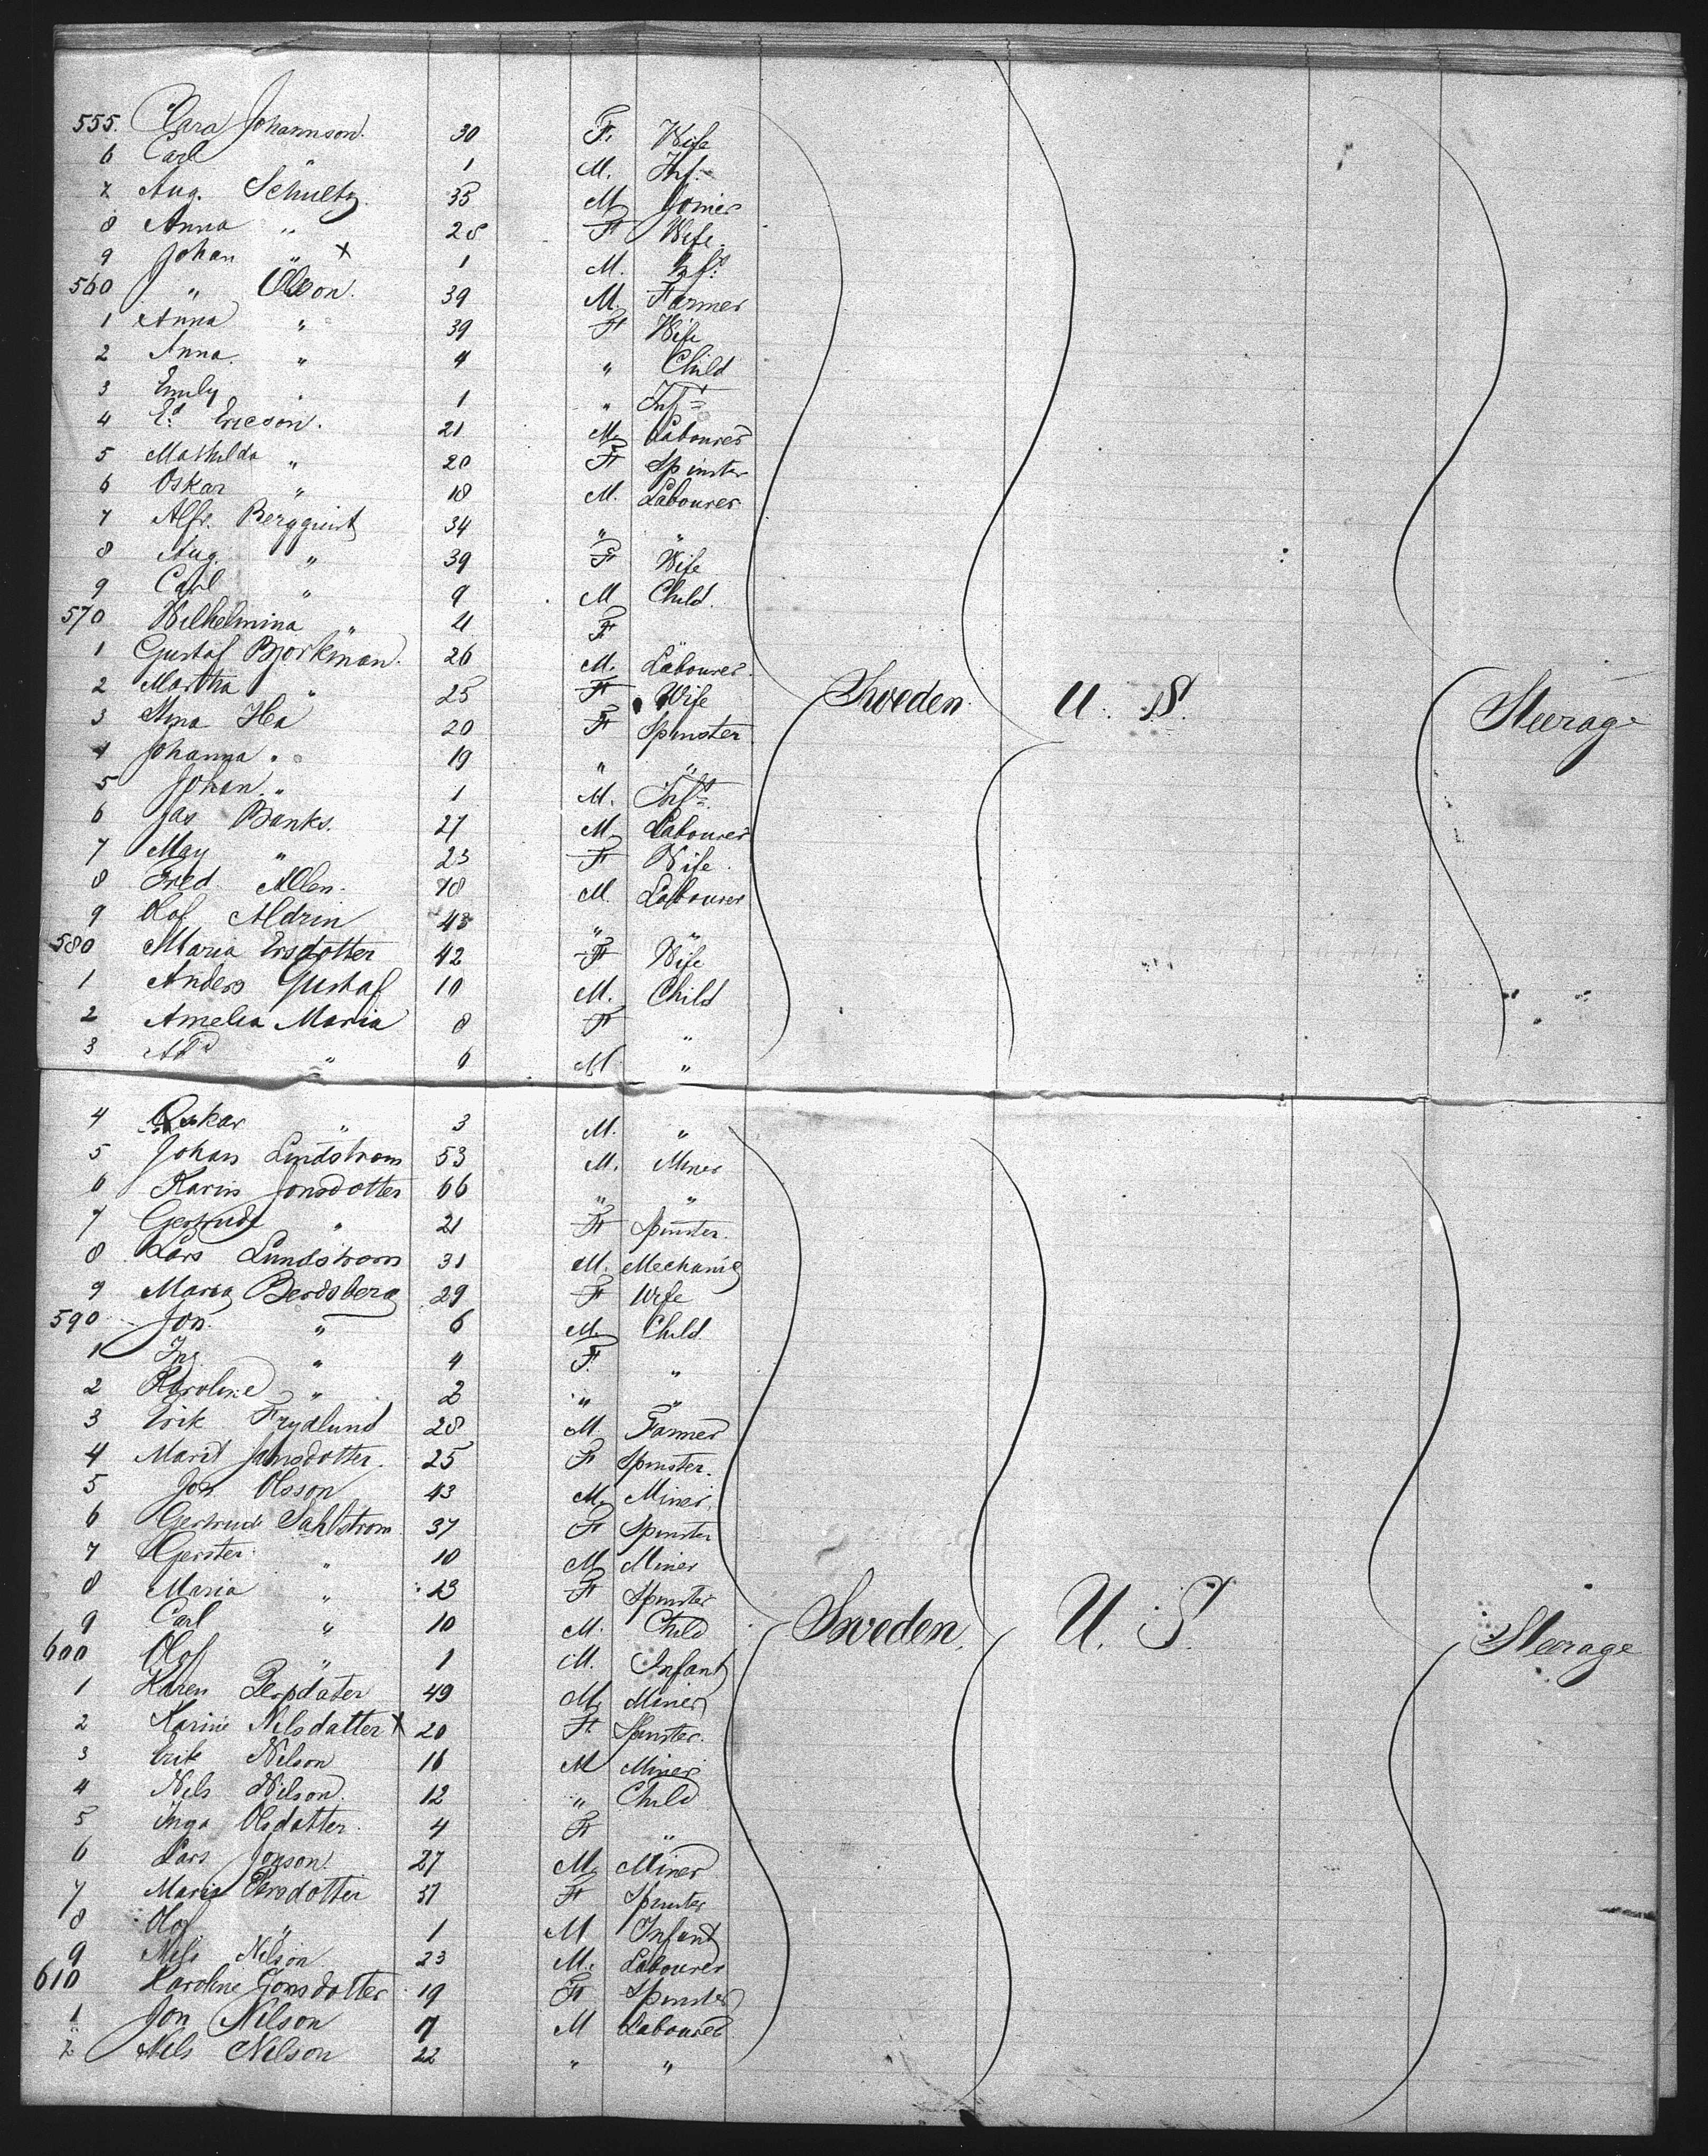 555. Clara Johannson. 30 F. Wife
6 Carl " 1 M. Inf.
7 Aug. Schultz. 35 M. Joiner
8 Anna " 28 F Wife.
9 Johan " X 1 M. Inf.t
560 " Olson. 39 M. Farmer
1 Anna " 39 F Wife
2 Anna. " 4 " Child
3 Emily " 1 " Inft
4 Ed. Ericson. 21 M. Labourer
5 Mathilda " 20 F Spinster
6 Oskar " 18 M. Labourer
7 Alfr. Bergquist 34 " "
8 Aug. " 39 F Wife
9 Carl " 9 M Child.
570 Wilhelmina " 4 F "
1 Gustaf Bjorkman. 26 M. Labourer.
2 Martha " 25 F Wife Sweden. U. S. Steerage
3 Hea 20 F Spinster
4 Johanna " 19 " "
5 Johan " 1 M. Inft.
6 Jas Banks. 27 M. Labourer
7 May " 23 F Wife.
8 Fred. Allen. 18 M. Labourer
9 Olof Aldrin 43 " "
580 Maria Ersdotter 42 F Wife
1 Anders Gustaf 10 M. Child
2 Amelia Maria 8 F "
3 " 6 M "
4 Oskar " 3 M. "
5 Johan Lindstrom 53 M. Miner
6 Karin Jonsdotter 66 " "
7 Gertrude " 21 F Spinster.
8 Lars Lundstrom 31 M. Mechanic
9 Maria Berdsberg 29 F Wife
590 Jon. " 6 M. Child
1 " 4 F. "
2 Karoline " 2 " "
3 Erik Frydlund 28 M. Farmer
4 Marit Jansdotter. 25 F Spinster.
5 Jon Olsson 43 M. Miner.
6 Gertrude Sahlstrom 37 F Spinster
7 Gerster " 10 M Miner
8 Maria " 13 F Spinster
9 Carl " 10 M. Child Sweden. U. S. Steerage
600 Olof " 1 M. Infant
1 Karen 49 M. Miner
2 Karine Nilsdatter X 20 F. Spinster.
3 Erik Nilson 16 M Miner
4 Nels Nilson. 12 " Child
5 Inga Olsdatter. 4 F "
6 Lars Jonson. 27 M. Miner
7 Maria Persdotter 37 F Spinster
8 Olof " 1 M Infant
9 Nels Nilson 23 M. Labourer
610 Karoline Jonsdotter 19 F Spinster
1 Jon Nilson 7 M Labourer
2 Nels Nelson 22 " "